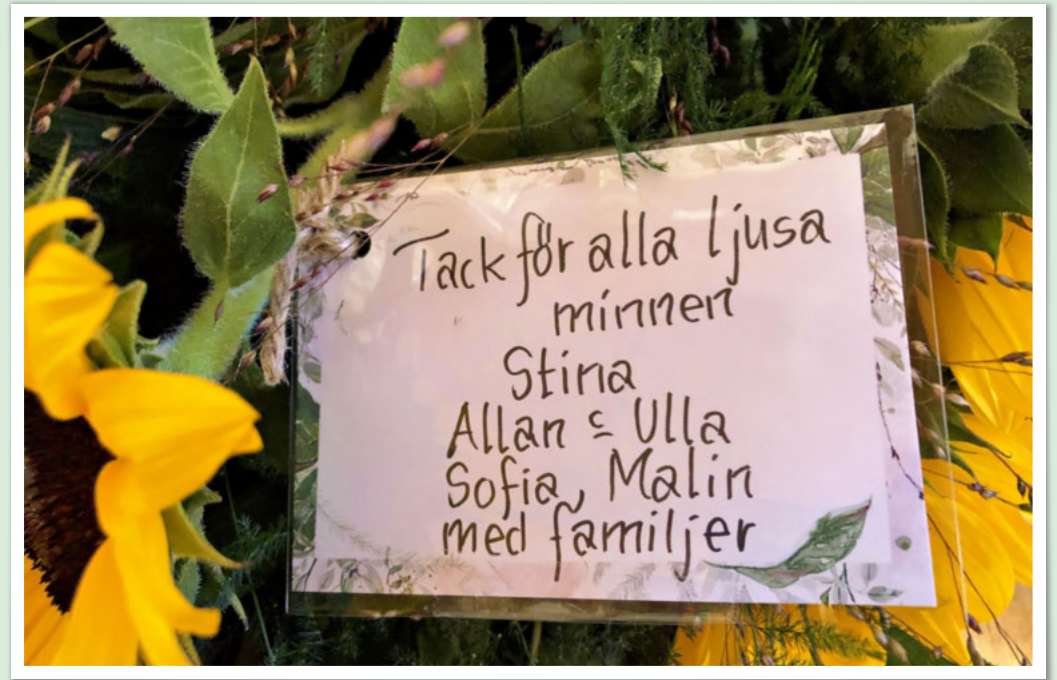 Tack för alla ljusa
minnen
Stina
Allan & Ulla
Sofia, Malin
med familjer